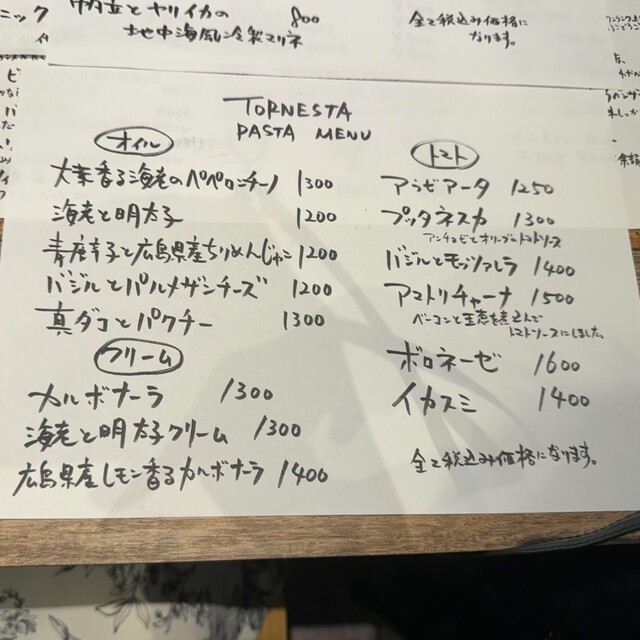 帆立とヤリイカの 800
地中海風冷製マリネ
全て税込み価格に
なります。
TORNESTA
PASTA MENU
オイル
大葉香る海老のペペロンチーノ 1300
海老と明太子 1200
青唐辛子と広島県産ちりめんじゃこ 1200
バジルとパルメザンチーズ 1200
真ダコとパクチー 1300
クリーム
カルボナーラ 1300
海老と明太子クリーム 1300
広島県産レモン香るカルボナーラ 1400
トマト
アラビアータ 1250
プッタネスカ 1300
アンチョビとオリーブのトマトソース
バジルとモッツァレラ 1400
アマトリチャーナ 1500
ベーコンと玉葱を煮込んで
トマトソースにしました。
ボロネーゼ 1600
イカスミ 1400
全て税込み価格になります。